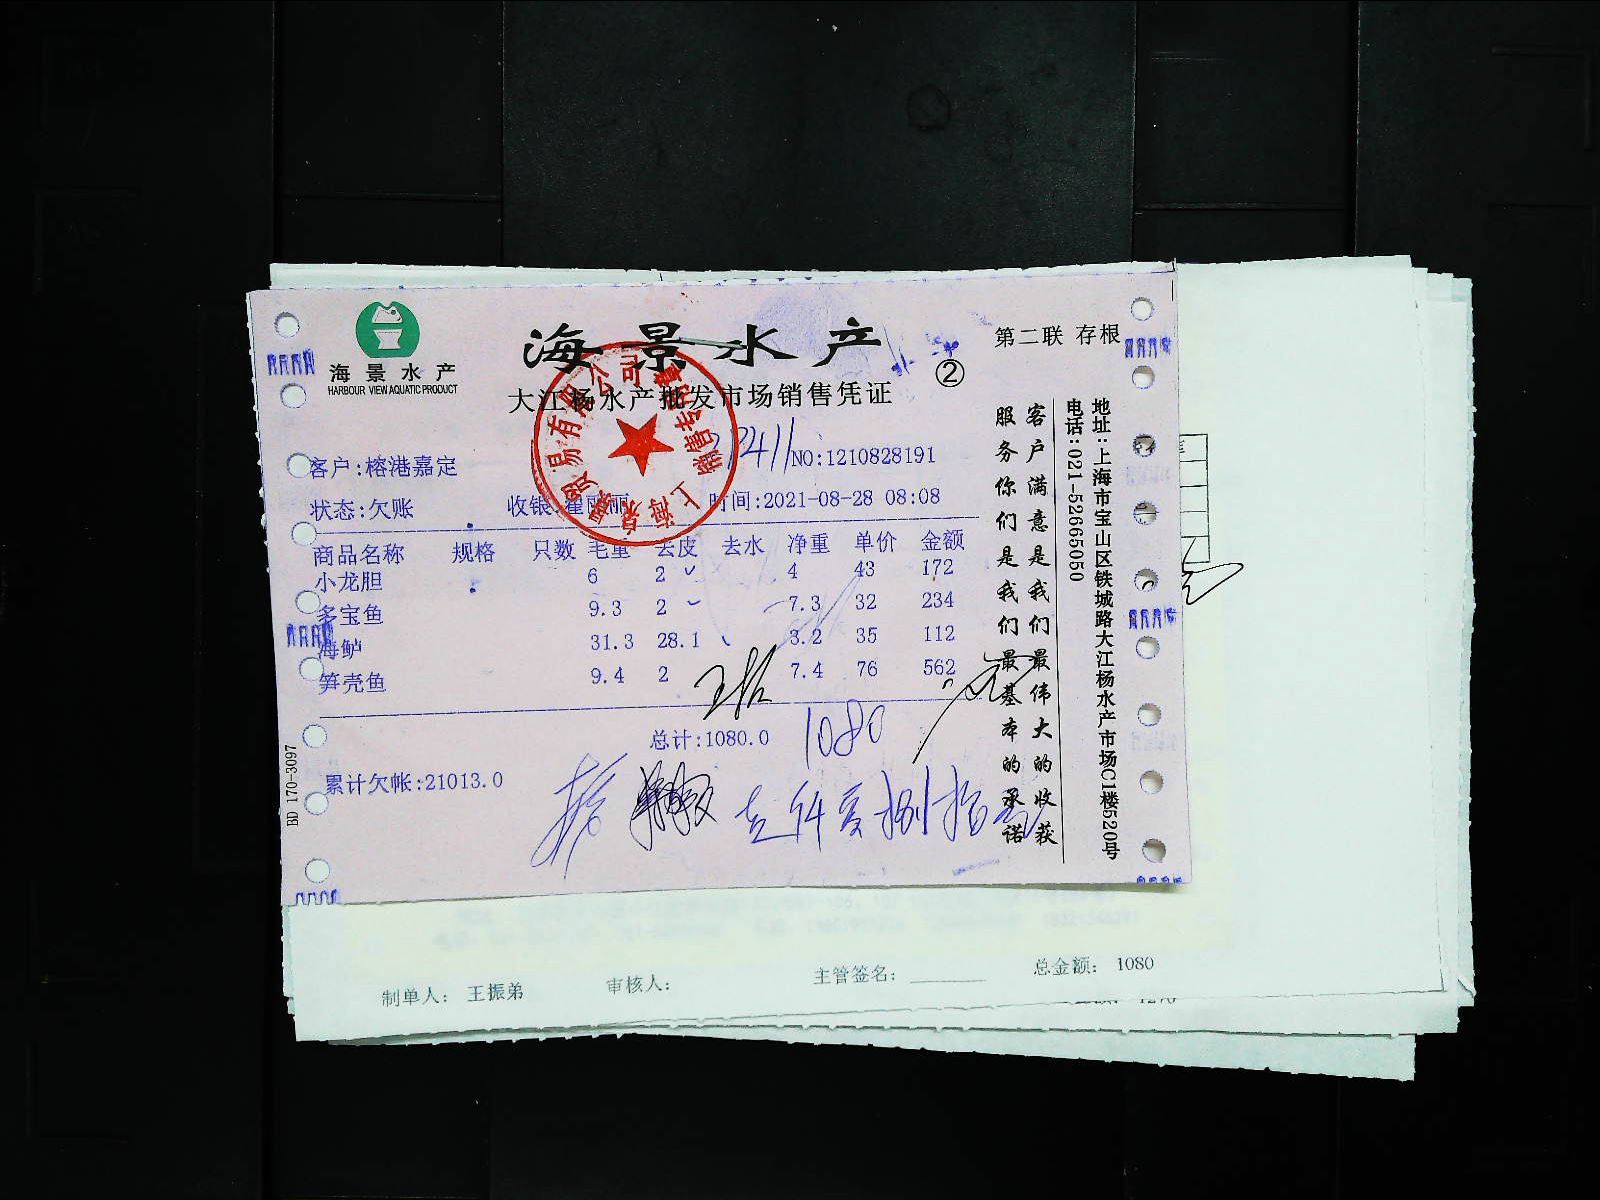 海景水产
HARBOUR VIEW AQUATIC PRODUCT
海景水产
第二联 存根
②
大江杨水产批发市场销售凭证
NO:1210828191
客户:榕港嘉定
状态:欠账 收银:翟丽丽 时间:2021-08-28 08:08
商品名称 规格 只数 毛重 去皮 去水 净重 单价 金额
小龙胆 6 2 4 43 172
多宝鱼 9.3 2 7.3 32 234
海鲈 31.3 28.1 3.2 35 112
笋壳鱼 9.4 2 7.4 76 562
总计:1080.0 1080
累计欠帐:21013.0
BD 170-3097
客户满意是我们最伟大的收获
服务你们是我们最基本的承诺
地址:上海市宝山区铁城路大江杨水产市场C1楼520号
电话:021-52665050
制单人: 王振弟 审核人: 主管签名: 总金额: 1080